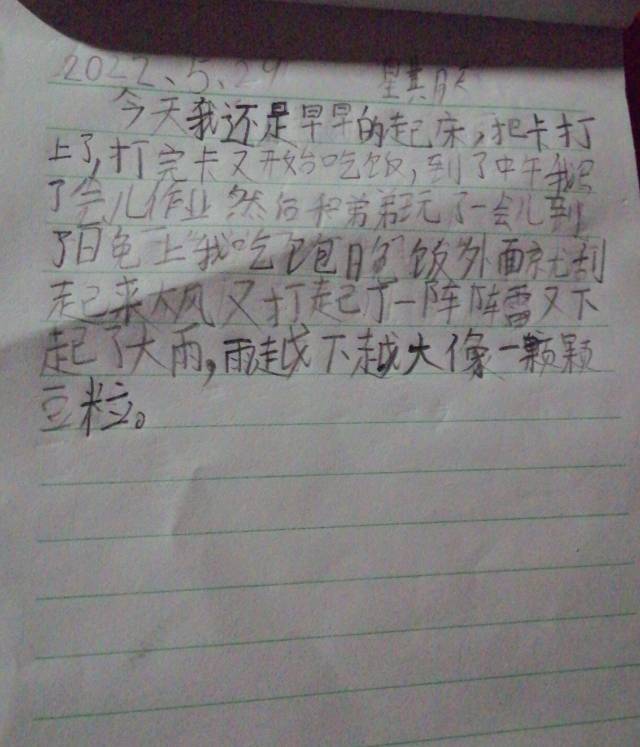 2022、5、29 星其天
今天我还是早早的起床，把卡打
上了，打完卡又开始吃饭，到了中午我写
了会儿作业 然后和弟弟玩了一会儿到
了上我吃饱的饭外面就刮
起来大风又打起了一阵阵雷又下
起了大雨，雨越下越大像一颗颗
豆粒。